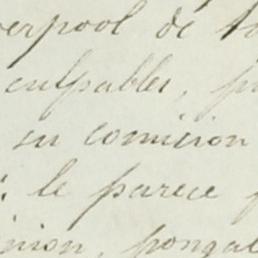 verpool de to
culpables, p
su comicion
: le parece p
inion, pongal